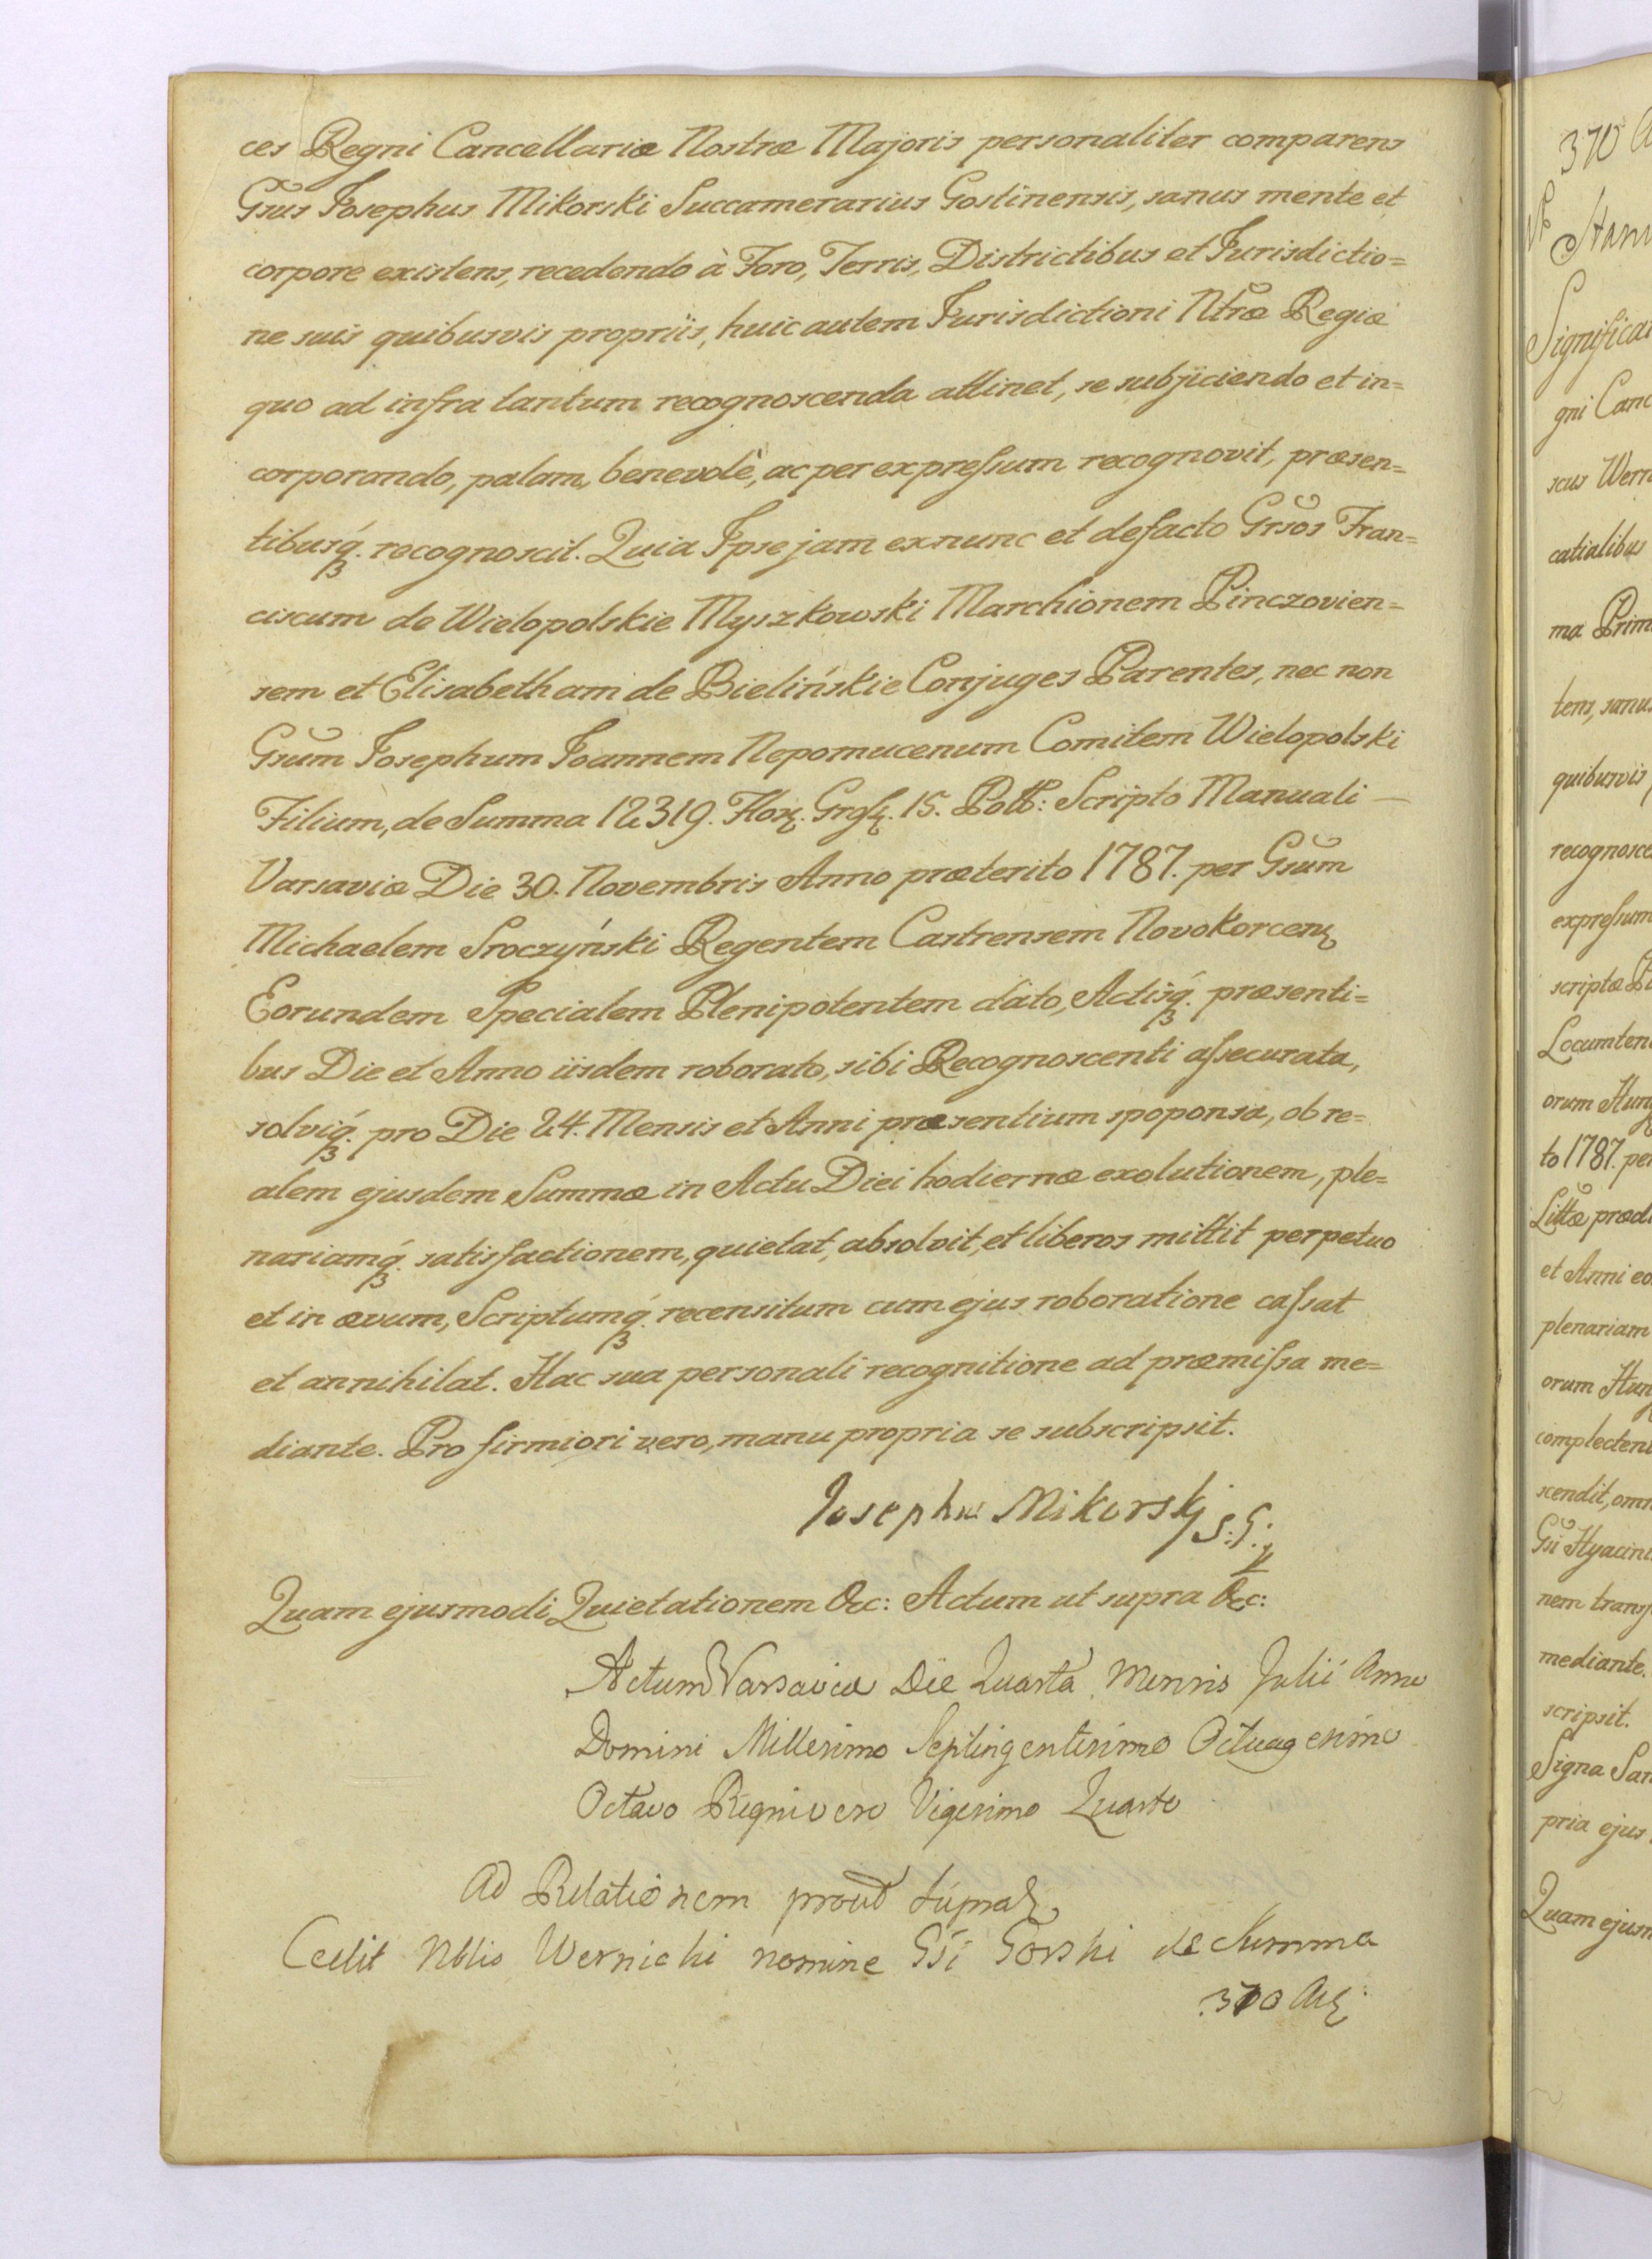 ces Regni Cancellariæ Nostræ Majoris personaliter comparens
Gsus Josephus Mikorski Succamerarius Gostinensis, sanus mente et
corpore existens, recedendo à Foro, Terris, Districtibus et Jurisdictio=
ne suis quibusvis propriis, huic autem Jurisdictioni Ntræ Regiæ
quo ad infra tantum recognoscenda attinet, se subjiciendo et in=
corporando, palam, benevolè, ac per expressum recognovit, præsen=
tibusq́. recognoscit. Quia Ipse jam exnunc et defacto Grsos Fran=
ciscum de Wielopolskie Myszkowski Marchionem Pinczovien=
sem et Elisabetham de Bielińskie Conjuges Parentes, nec non
Gsum Josephum Joannem Nepomucenum Comitem Wielopolski
Filium, de Summa 12319. Flor. Gross. 15. Poll: Scripto Manuali —
Varsaviæ Die 30. Novembris Anno præterito 1787. per Gsum
Michaelem Sroczyński Regentem Castrensem Novokorcen
Eorundem Specialem Plenipotentem dato, Actisq́. præsenti=
bus Die et Anno iisdem roborato, sibi Recognoscenti assecurata,
solviq́. pro Die 24. Mensis et Anni præsentium spoponsa, ob re=
alem ejusdem Summæ in Actu Diei hodiernæ exolutionem, ple=
nariamq́. satisfactionem, quietat, absolvit, et liberos mittit perpetuo
et in ævum, Scriptumq́. recensitum cum ejus roboratione cassat
et annihilat. Hac sua personali recognitione ad præmissa me=
diante. Pro firmiori vero, manu propria se subscripsit.
Josephus Mikorskj S: G:
Quam ejusmodi Quietationem &c: Actum ut supra &c:
Actum Varsaviæ Die Quarta Mensis Julii Anno
Domini Millesimo Septingentesimo Octuagesimo
Octavo Regni vero Vigesimo Quarto
Ad Relationem prout supra
Cedit Nblis Wernicki nomine Gsi Gorski de Summa
370 Aur:
370
Stani
Significa
gni Canc
scus Wern
catialibus
ma Prim
tens, sanus
quibusvis
recognosce
expressum
scriptæ
Locumten
orum Hung
to 1787. per
Littæ prædi
et Anni eo
plenariam
orum Hun
complecten
scendit, omn
Gsi Hyacin
nem trans
mediante.
scripsit.
Signa San
pria ejus
Quam ejusm